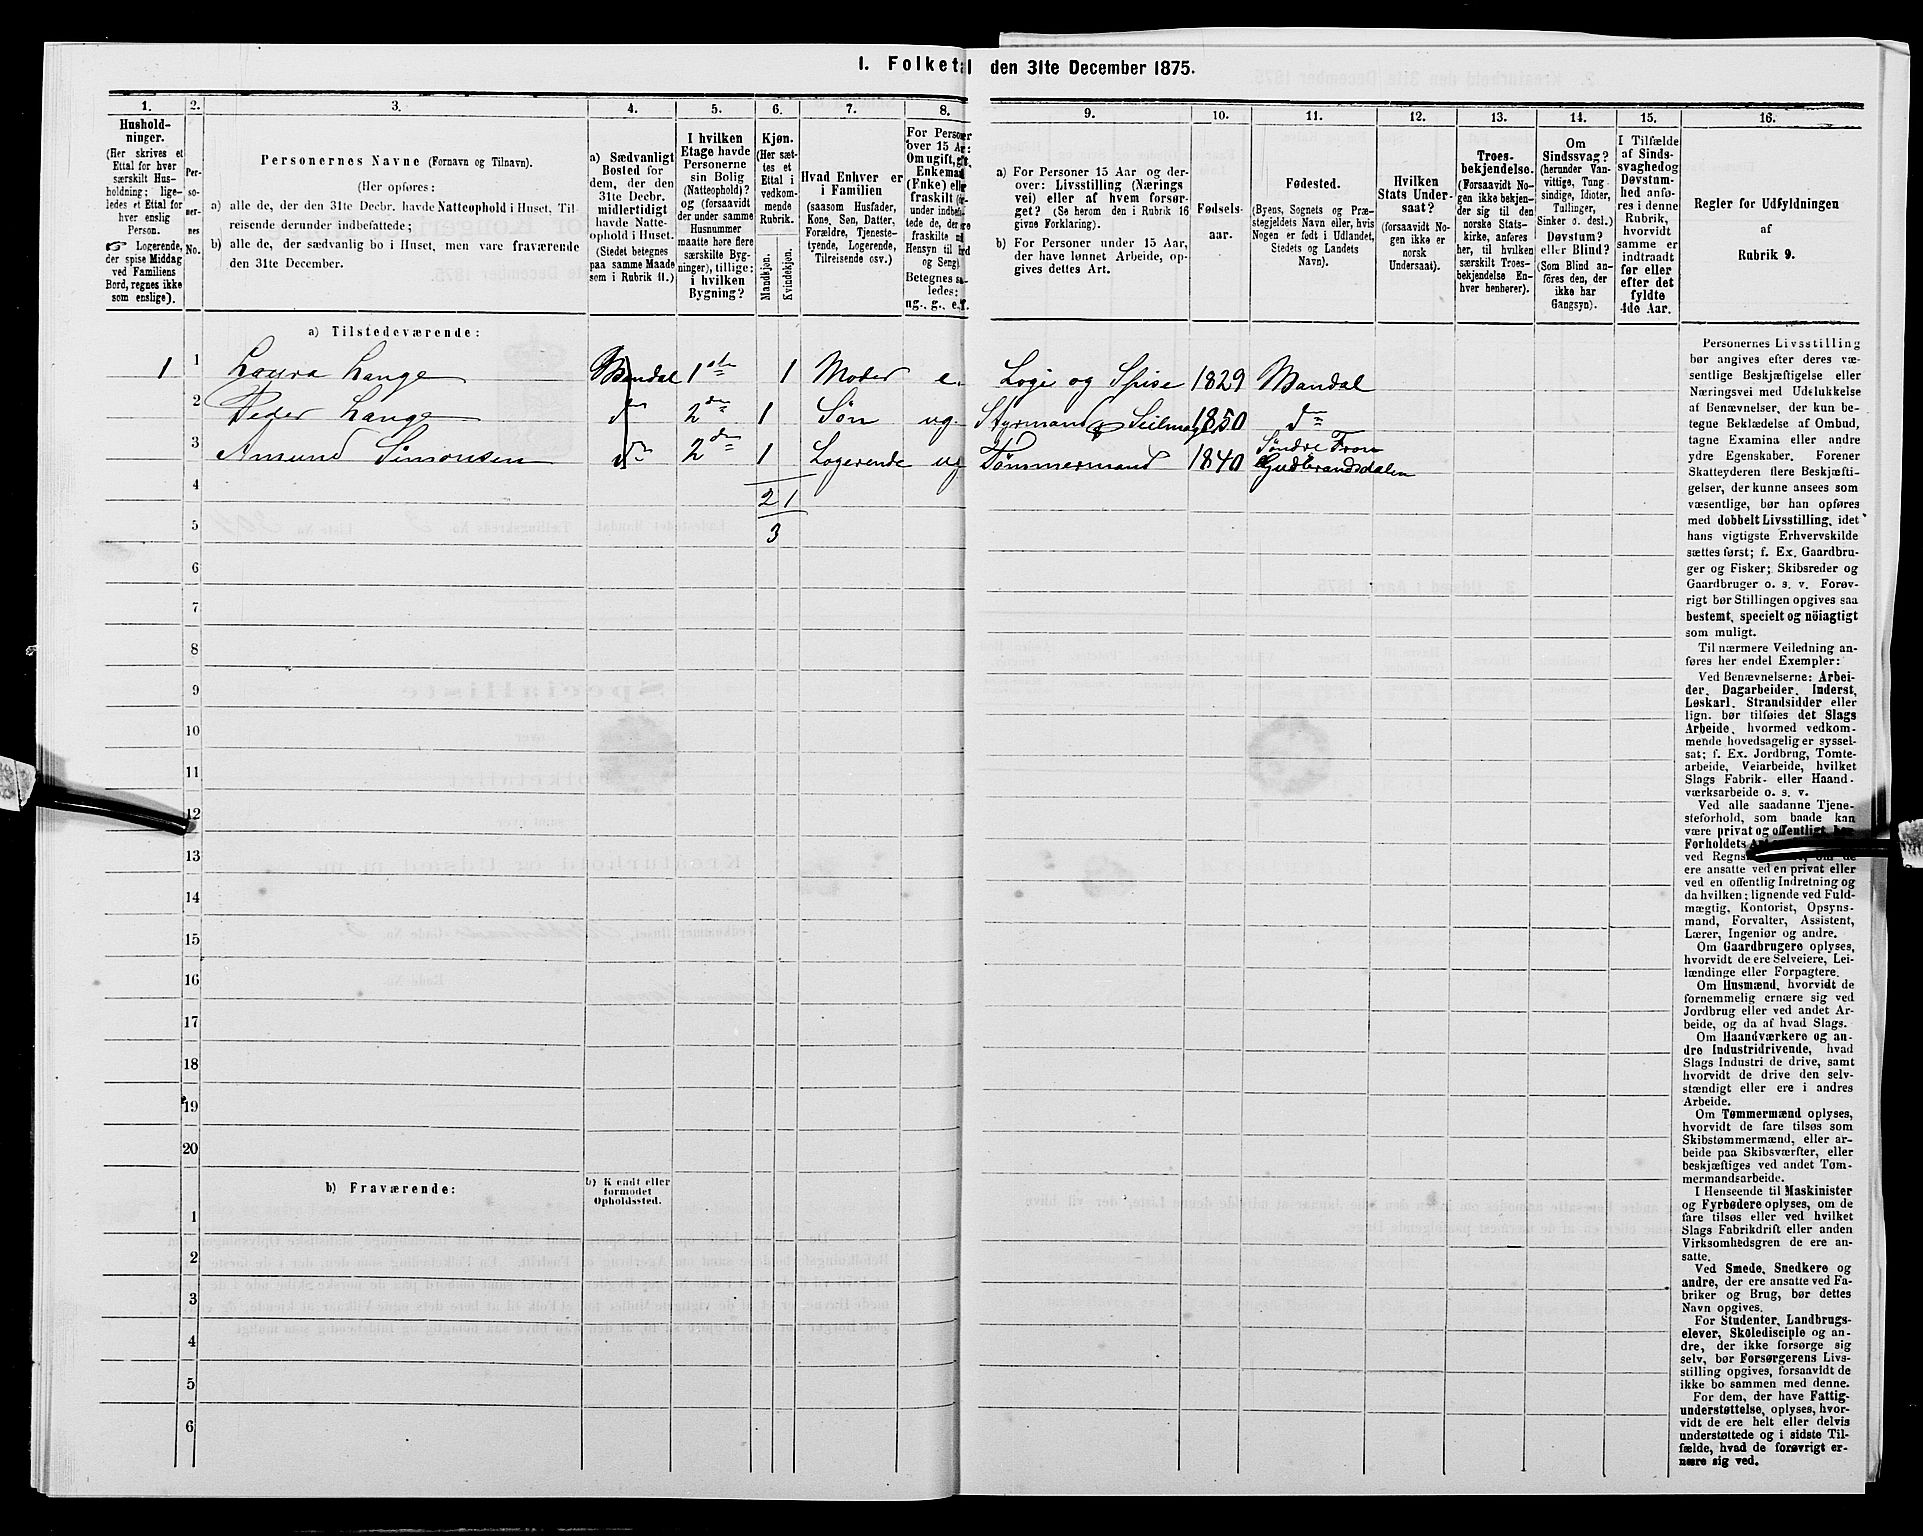 I. Folketal den 31te December 1875.
1. 2. 3. 4. 5. 6. 7. 8. 9. 10. 11. 12. 13. 14. 15. 16.
Hushold-
ninger.
(Her skrives et
Ettal for hver
særskilt Hus-
holdning; lige-
ledes et Ettal for
hver enslig
Person.
☞ Logerende,
der spise Middag
ved Familiens
Bord, regnes ikke
som enslige).
Per-
so-
ner-
nes
No.
Personernes Navne (Fornavn og Tilnavn).
(Her opføres:
a) alle de, der den 31te Decbr. havde Natteophold i Huset, Til-
reisende derunder indbefattede;
b) alle de, der sædvanlig bo i Huset, men vare fraværende
den 31te December.
a) Sædvanligt
Bosted for
dem, der den
31te Decbr.
midlertidigt
havde Natte-
ophold i Huset.
(Stedet betegnes
paa samme Maade
som i Rubrik 11.)
I hvilken
Etage havde
Personerne
sin Bolig
(Natteophold)?
og (forsaavidt
der under samme
Husnummer
maatte høre flere
særskilte Byg-
ninger), tillige:
i hvilken
Bygning?
Kjøn.
(Her sæt-
tes et
Ettal i
vedkom-
mende
Rubrik.
Mandkjøn.
Kvindekjøn.
Hvad Enhver er
i Familien
(saasom Husfader,
Kone, Søn, Datter,
Forældre, Tjeneste-
tyende, Logerende,
Tilreisende osv.)
For Personer
over 15 Aar:
Om ugift, gift,
Enkemand
(Enke) eller
fraskilt
Betegnes saa-
ledes:
ug., g., e., f.
a) For Personer 15 Aar og der-
over: Livsstilling (Nærings
vei) eller af hvem forsør-
get? (Se herom den i Rubrik 16
givne Forklaring).
b) For Personer under 15 Aar,
der have lønnet Arbeide, op-
gives dettes Art.
Fødsels-
aar.
Fødested.
(Byens, Sognets og Præ-
stegjeldets Navn eller, hvis
Nogen er født i Udlandet,
Stedets og Landets
Navn).
Hvilken
Stats Under-
saat?
(forsaavidt No-
gen ikke er
norsk
Undersaat).
Troes-
bekjendelse.
(Forsaavidt No-
gen ikke bekjen-
der sig til den
norske Stats-
kirke, anføres
her, til hvilken
særskilt Troes-
bekjendelse En-
hver henhører).
Om
Sindssvag?
(herunder Van-
vittige, Tung
sindige, Idioter,
Tullinger,
Sinker o. desl.)
Døvstum?
eller Blind?
(Som Blind an-
føres den, der
ikke har
Gangsyn).
I Tilfælde
af Sinds-
svaghed og
Døvstum-
hed anfø-
res i denne
Rubrik,
hvorvidt
samme er
indtraadt
før eller
efter det
fyldte
4de Aar.
Regler for Udfyldningen
af
Rubrik 9.
a) Tilstedeværende:
1 1 Laura Lange Mandal 1ste 1 Moder e. Logi og Spise 1829 Mandal
2 Peder Lange do 2den 1 Søn ug. Styrmand & Seilmager 1850 do
3 Amund Simonsen do 2den 1 Logerende ug Tømmermand 1840 Søndre Fron Gudbrandsdalen
4 2 1
5 3
6
7
8
9
10
11
12
13
14
15
16
17
18
19
20
b) Fraværende:
b) Kjendt eller
formodet
Opholdssted.
1
2
3
4
5
6
Personernes Livsstilling
bør angives efter deres væ-
sentlige Beskjæftigelse eller
Næringsvei med Udelukkelse
af Benævnelser, der kun be-
tegne Beklædelse af Ombud,
tagne Examina eller andre
ydre Egenskaber. Forener
Skatteyderen flere Beskjæfti-
gelser, der kunne ansees som
væsentlige, bør han opføres
med dobbelt Livsstilling, idet
hans vigtigste Erhvervskilde
sættes først; f. Ex. Gaardbru-
ger og Fisker; Skibsreder og
Gaardbruger o. s. v. Forøv-
rigt bør Stillingen opgives saa
bestemt, specielt og nöiagtigt
som muligt.
Til nærmere Veiledning an-
føres her endel Exempler:
Ved Benævnelserne: Arbei-
der, Dagarbeider, Inderst,
Løskarl, Strandsidder eller
lign. bør tilføies det Slags
Arbeide, hvormed vedkom-
mende hovedsagelig er syssel-
sat; f. Ex. Jordbrug, Tomte-
arbeide, Veiarbeide, hvilket
Slags Fabrik- eller Haand-
værksarbeide o. s. v.
Ved alle saadanne Tjene-
steforhold, som baade kan
være privat og offentligt, bør
Forholdets
ved Regns
ere ansatte ved en privat eller
ved en offentlig Indretning og
da hvilken; lignende ved Fuld-
mægtig, Kontorist, Opsyns-
mand, Forvalter, Assistent,
Lærer, Ingeniør og andre.
Om Gaardbrugere oplyses,
hvorvidt de ere Selveiere, Lei-
lændinge eller Forpagtere.
Om Husmænd, hvorvidt de
fornemmelig ernære sig ved
Jordbrug eller ved andet Ar-
beide, og da af hvad Slags.
Om Haandværkere og an-
dre Industridrivende, hvad
Slags Industri de drive, samt
hvorvidt de drive den selv-
stændigt eller ere i andres
Arbeide.
Om Tømmermænd oplyses,
hvorvidt de fare tilsøs som
Skibstømmermænd, eller ar-
beide paa Skibsværfter, eller
beskjæftiges ved andet Tøm-
mermandsarbeide.
I Henseende til Maskinister
og Fyrbødere oplyses, om de
fare tilsøs eller ved hvilket
Slags Fabrikdrift eller anden
Virksomhedsgren de ere an-
satte.
Ved Smede, Snedkere og
andre, der ere ansatte ved Fa-
briker og Brug, bør dettes
Navn opgives.
For Studenter, Landbrugs-
elever, Skoledisciple og an-
dre, der ikke forsørge sig
selv, bør Forsørgerens Livs-
stilling opgives, forsaavidt de
ikke bo sammen med denne.
For dem, der have Fattig-
understøttelse, oplyses, hvor-
vidt de ere helt eller delvis
understøttede og i sidste Til-
fælde, hvad de forøvrigt er-
nære sig ved.